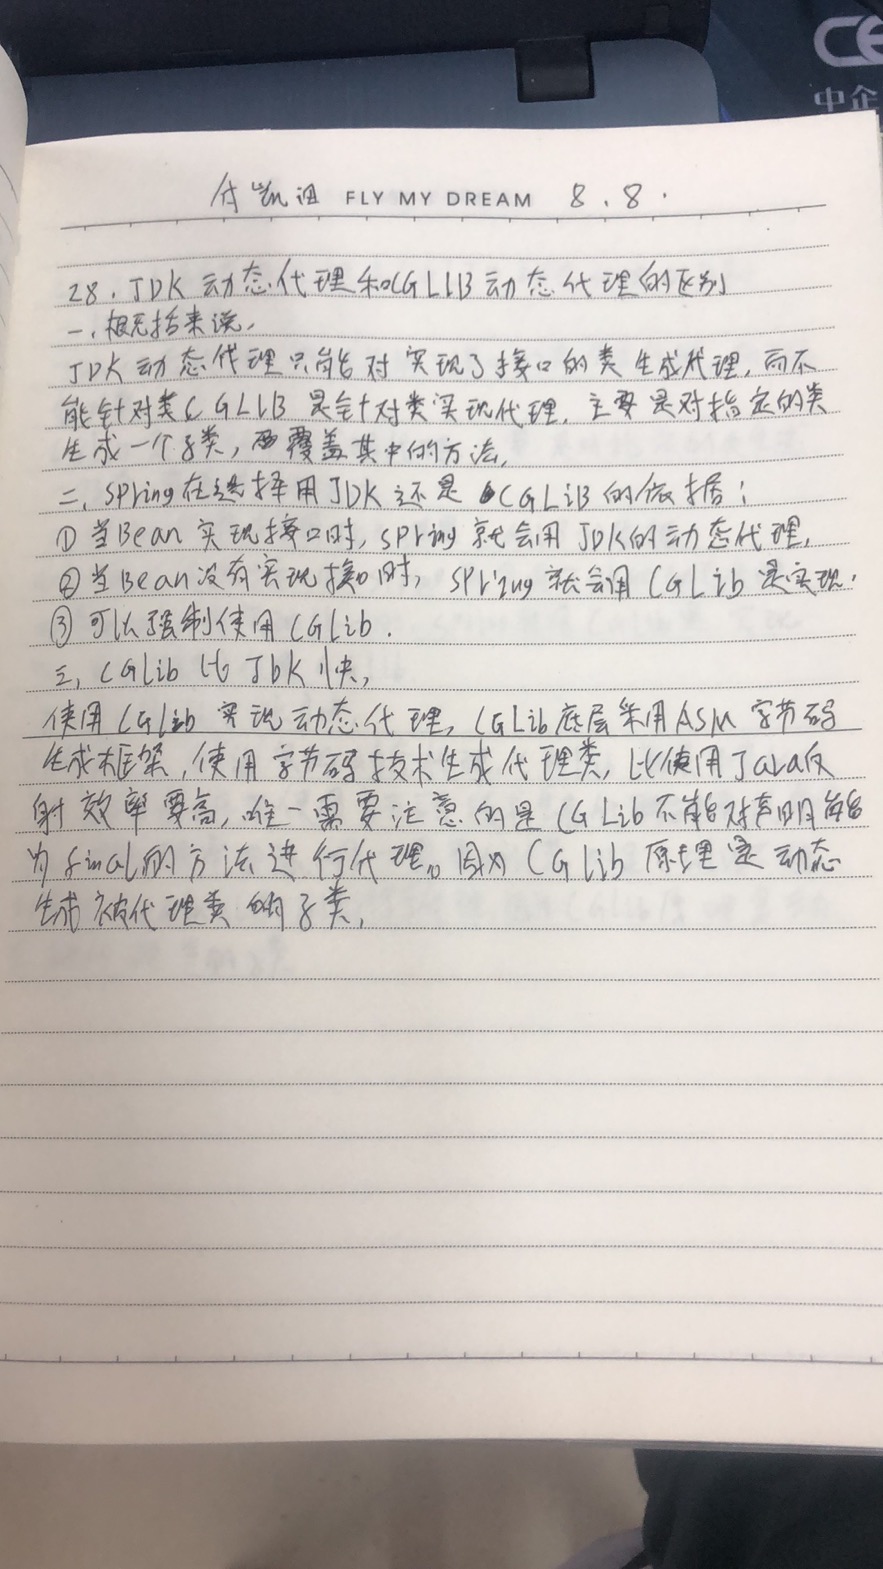 CE
中企
付凯 FLY MY DREAM 8.8.
28.JDK动态代理和CGLIB动态代理的区别
一、概括来说,
JDK动态代理只能对实现了接口的类生成代理,而不
能针对类CGLIB是针对类实现代理,主要是对指定的类
生成一个子类,覆盖其中的方法,
二、Spring在选择用JDK还是CGLiB的依据:
①当Bean实现接口时,spring就会用JDK的动态代理,
②当Bean没有实现接口时,spring就会用CGLib是实现.
③可以强制使用CGLib.
三、CGLib比JDK快,
使用CGLib实现动态代理,CGLib底层采用ASM字节码
生成框架,使用字节码技术生成代理类,比使用Java反
射效率要高,唯一需要注意的是CGLib不能对声明能
为final的方法进行代理。因为CGLib原理是动态
生成被代理类的子类,